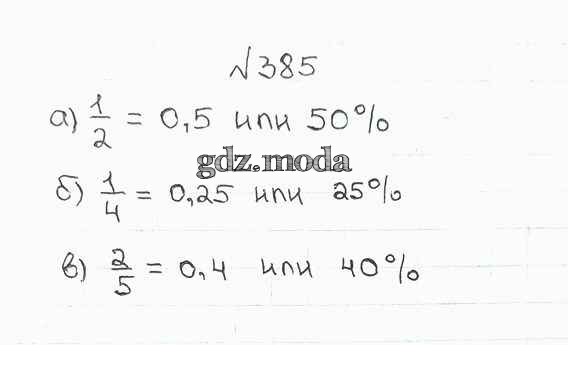 №385
а) 1/2 = 0,5 или 50%
gdz.moda
б) 1/4 = 0,25 или 25%
в) 2/5 = 0,4 или 40%